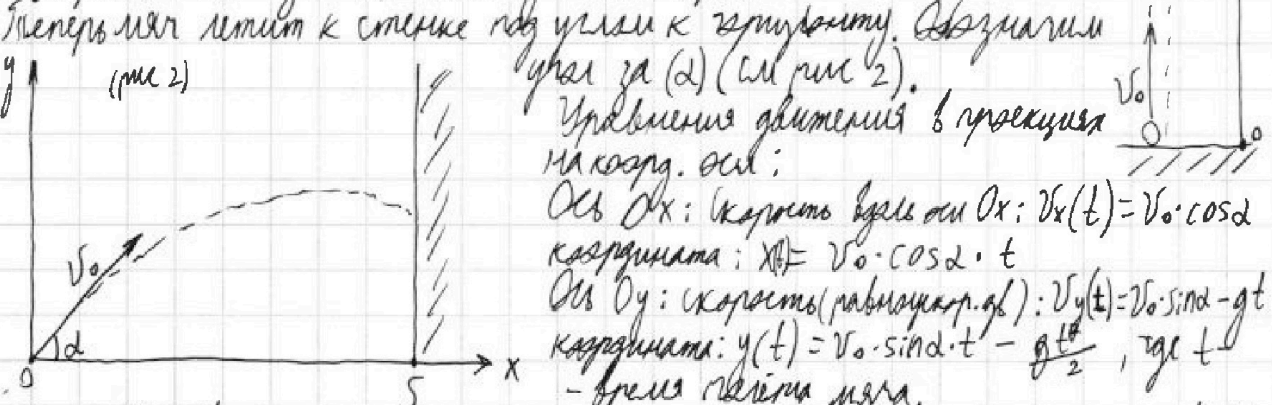 Теперь мяч летит к стенке под углом к горизонту. Обозначим
угол за (α) (см рис 2).
y
(рис 2)
V₀
α
0
S
x
V₀
Уравнения движения в проекциях
на коорд. оси:
Ось Ox: скорость вдоль оси Ox: Vx(t)=V₀·cosα
координата: x(t)= V₀·cosα·t
Ось Oy: скорость (равноускор. дв): Vy(t)=V₀·sinα-gt
координата: y(t)=V₀·sinα·t - gt²/2, где t-
- время полёта мяча.